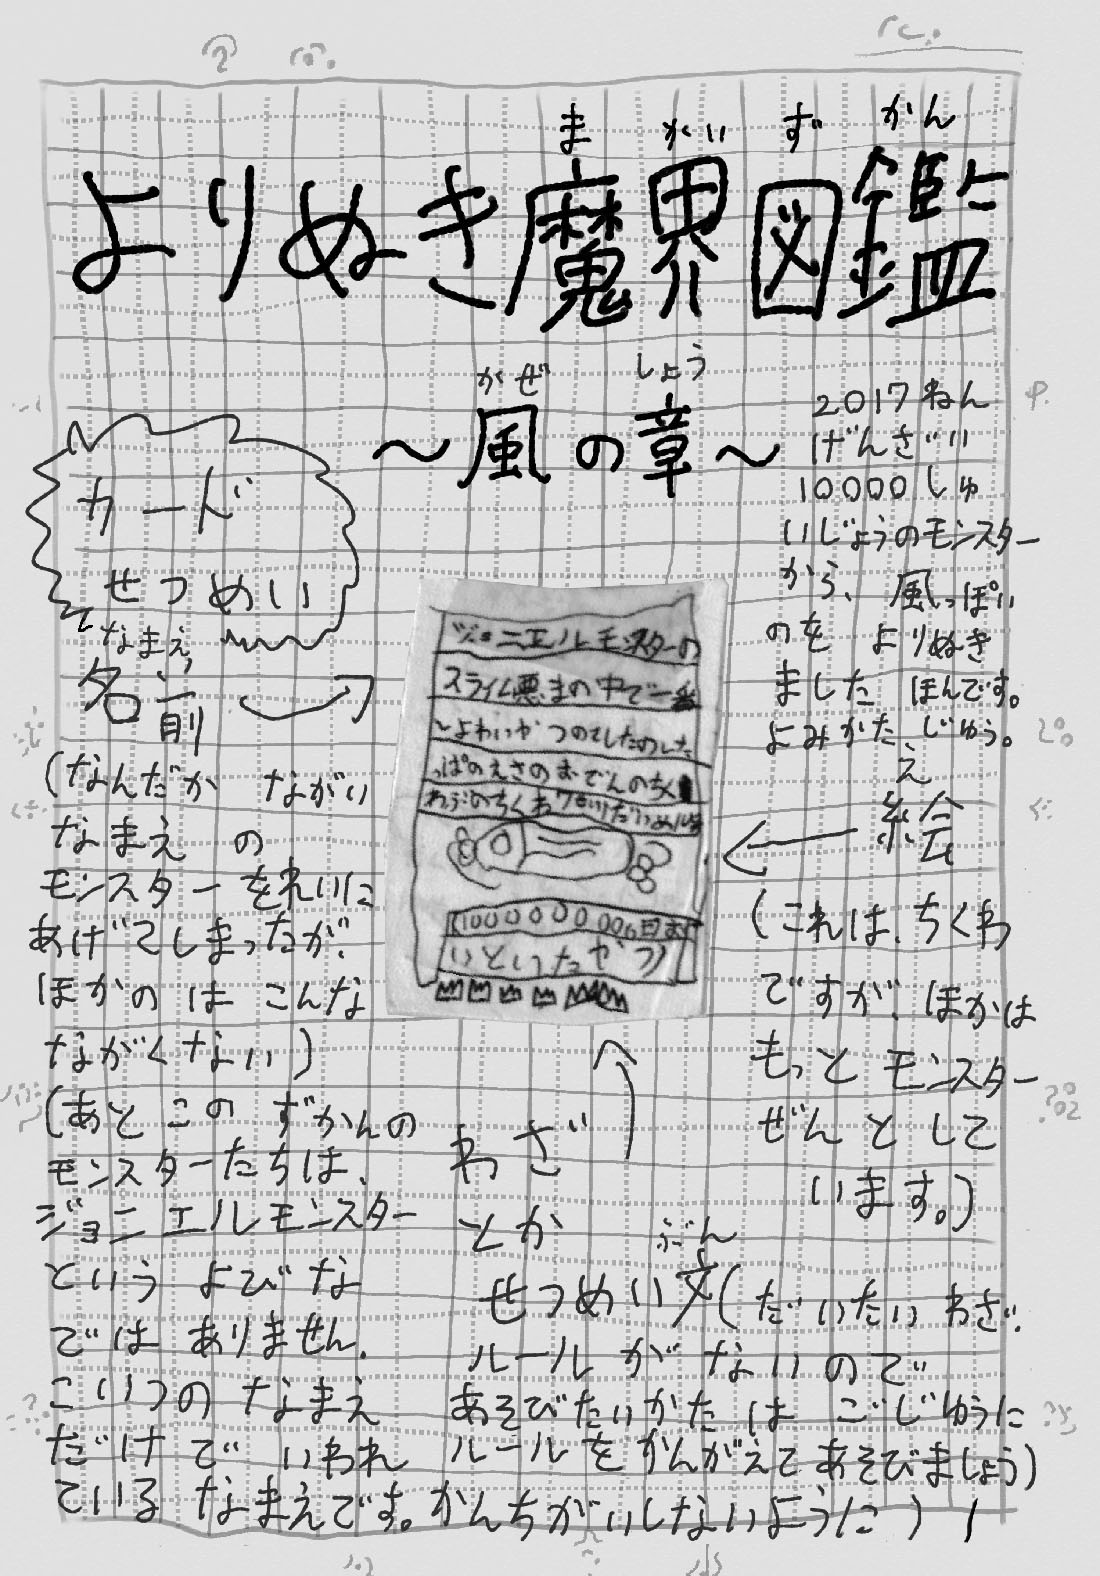 よりぬき魔界図鑑
ま がい ず かん
〜風の章〜
かぜ しょう
2017ねん
げんざい
10000しゅ
いじょうのモンスター
から、風っぽい
のを よりぬき
ました ほんです。
よみかた じゆう。
カード
せつめい
なまえ
名前
(なんだか ながい
なまえ の
モンスターをれいに
あげてしまったが、
ほかの は こんな
ながくない)
(あと この ずかんの
モンスターたちは、
ジョニエルモンスター
という よびな
では ありません。
こいつの なまえ
だけで いわれ
ている なまえです。かんちがいしないように)
ジョニエルモンスターの
スライム悪まの中で一番
よわいかつのてしたのした
っぱのえさのおでんのちく
え
絵
(これは、ちくわ
ですが、ほかは
もっと モンスター
ぜんと して
います。)
わざ
とか
せつめい文(だいたい わざ、
ぶん
ルール が ない ので
あそびたいかた は ごじゆうに
ルールを かんがえて あそびましょう)
1